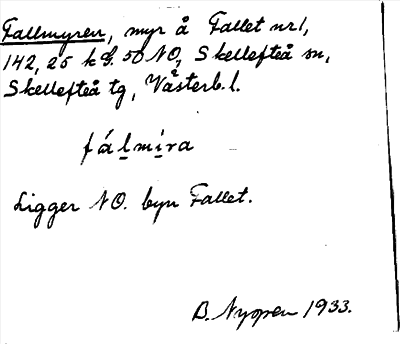 Fallmyren, myr å Fallet nr 1,
142, 25 kg. 50 NO, Skellefteå sn,
Skellefteå tg, Västerb. l.
fálmíra
Ligger NO. byn Fallet.
B. Nyopen 1933.